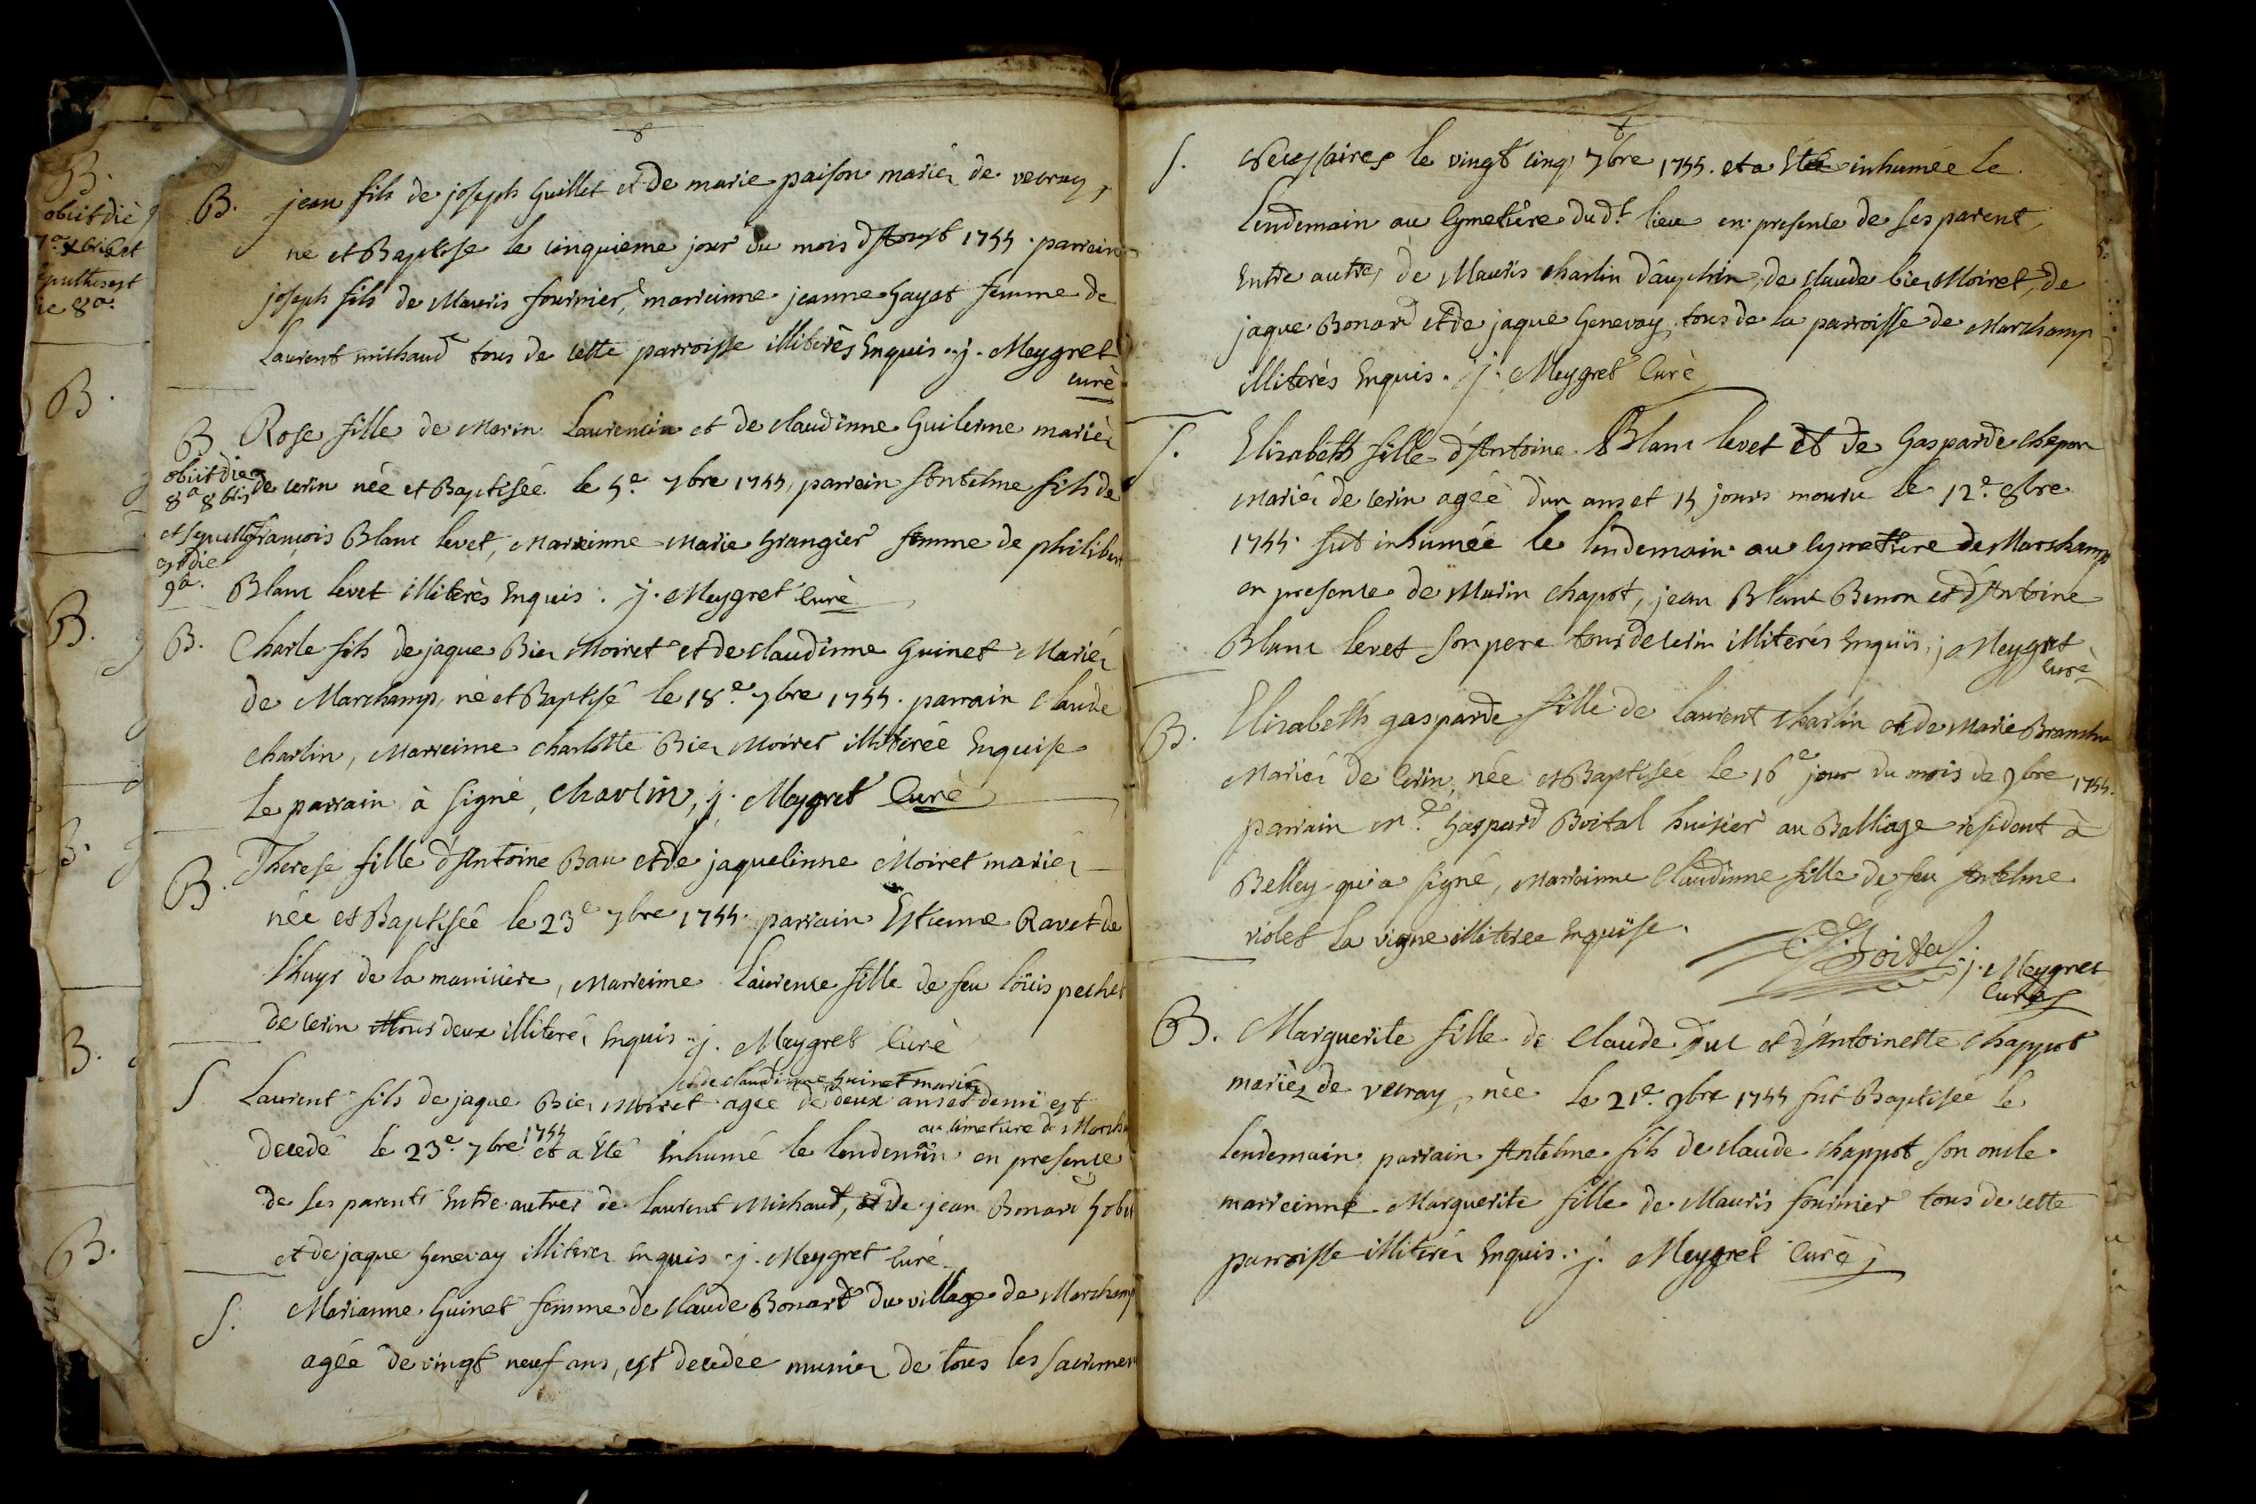 B.
obiit die
7a xbris et
sepultus est
die 8a.
B.
B.
B.
B.
B.
B. jean fils de joseph Guillet et de marie paison mariés de vecray,
né et Baptisé le cinquieme jour du mois d'Aoust 1755. parrein
joseph fils de Mauris fournier, marreinne jeanne Gayat femme de
Laurent michaud tous de cette parroisse illiterés Enquis. j. Meygret
curè
B Rose fille de Marin Laurencin et de claudinne Guilerme mariés
obiit die 8a 8bris
et sepulta est die 9a.
de cerin née et Baptisée le 5e. 7bre 1755, parrein Antelme fils de
françois Blanc levet, Marreinne Marie Grangier femme de philibert
Blanc levet illiterés Enquis. j. Meygret Curè
B. Charle fils de jaque Bier Moiret et de claudinne Guinet Mariés
de Marchamp, né et Baptisé le 18e. 7bre 1755. parrain Claude
charlin, Marreinne charlotte Bier Moiret illiterée Enquise
le parrain à signé, charlin, j. Meygret Curè
B. Therese fille d'Antoine Bau et de jaquelinne Moiret mariés
née et Baptisée le 23e 7bre 1755. parrain Estienne Ravet de
l'huys de la manisiere, Marreinne Laurence fille de feu Loüis pechet
de cerin tous deux illiterés Enquis. j. Meygret Curè
et de claudinne Guinet mariés
S Laurent fils de jaque Bier Moiret agée de deux ans et demi est
au cimetiere de Marcha
decedé le 23e. 7bre 1755 et a Eté inhumé le lendemain en presence
de ses parents Entre autres de Laurent Michaud, et de jean Bonard Gobet
et de jaque Genevay illiteres Enquis. j. Meygret Curé
S. Marianne Guinet femme de claude Bonard du village de Marchamp
agée de vingt neuf ans, est decedée munier de tous les sacremen
S. Necessaires le vingt cinq 7bre 1755. et a Eté inhumée le
lendemain au Cymetiere dudt. lieu en presence de ses parent,
Entre autres de Mauris charlin dauphin, de claude bier Moiret, de
jaque Bonard et de jaque Genevay, tous de la parroisse de Marchamp
illiterés Enquis. j. Meygret Curè
S. Elisabeth fille d'Antoine Blanc levet et de Gasparde chapon
mariés de cerin agée d'un ans et 15 jours mouru le 12e. 8bre
1755. fut inhumée le lendemain au Cymetiere de Marchamp
en presence de Marin chapot, jean Blanc Benon et d'Antoine
Blanc levet son pere tous de cerin illiterés Enquis, j Meygret
Curè
B. Elisabeth gasparde fille de laurent charlin et de Marie Branche
Mariés de Cerin, née et Baptisée le 16e jour du mois de 9bre 1755.
parrain mre. Gaspard Boital huisier au Balliage residant à
Belley qui a signé, Marreinne Claudinne fille de feu Antelme
violet la vigne illiterée Enquise.
Boital j. Meygret
Curè
B. Marguerite fille de Claude Duc et d'Antoinette chappot
mariés de vecray, née le 21e. 9bre 1755 fut Baptisée le
lendemain, parrain Antelme fils de claude chappot son oncle
marreinne Marguerite fille de Mauris fournier tous de cette
parroisse illiterés Enquis. j. Meygret Curè